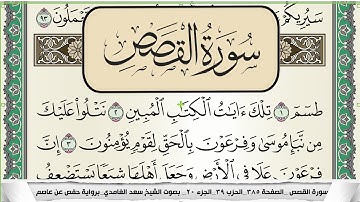 سَيُرِيكُمْ
تَعْمَلُونَ ٩٣
سُورَةُ القَصَصِ
طسٓمٓ ١ تِلْكَ ءَايَٰتُ ٱلْكِتَٰبِ ٱلْمُبِينِ ٢ نَتْلُوا۟ عَلَيْكَ
مِن نَّبَإِ مُوسَىٰ وَفِرْعَوْنَ بِٱلْحَقِّ لِقَوْمٍ يُؤْمِنُونَ ٣ إِنَّ
فِرْعَوْنَ عَلَا فِى ٱلْأَرْضِ وَجَعَلَ أَهْلَهَا شِيَعًا يَسْتَضْعِفُ
سورة القصص _ الصفحة ٣٨٥_ الحزب ٣٩_ الجزء ٢٠ _ بصوت الشيخ سعد الغامدي _برواية حفص عن عاصم